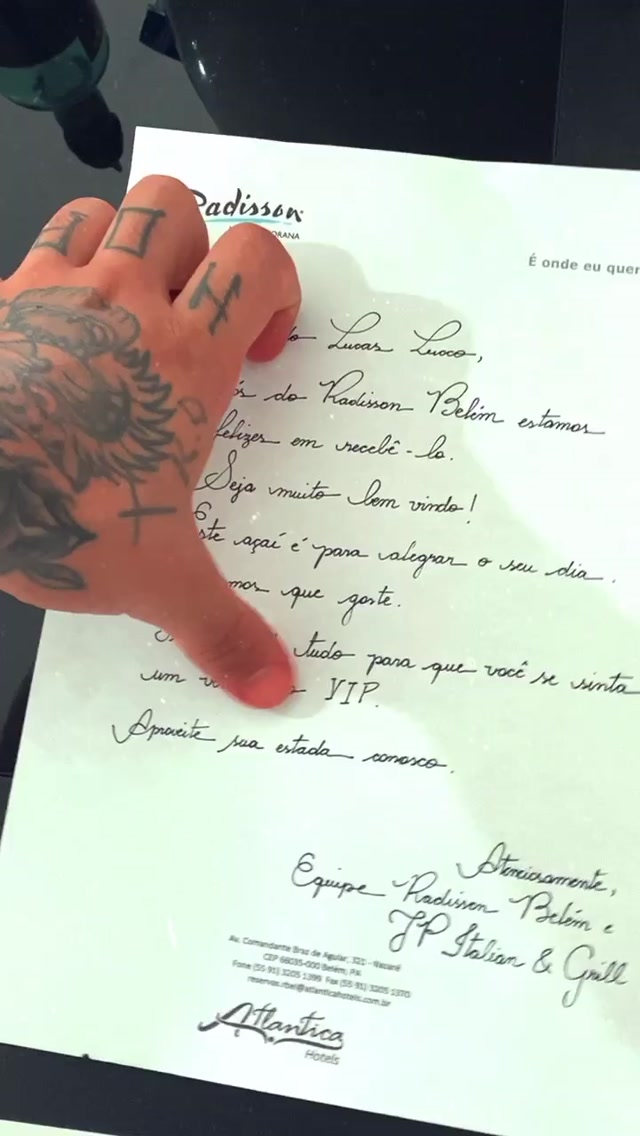 Radisson
É onde eu quer
do Lucas Lucco,
ós do Radisson Belém estamos
felizes em recebê-lo.
Seja muito bem vindo!
Este açaí é para alegrar o seu dia.
mos que goste.
tudo para que você se sinta
um VIP.
Aproveite sua estada conosco.
Atenciosamente,
Equipe Radisson Belém e
JP Italian & Grill
Av. Comandante Braz de Aguiar, 321 - Nazaré
CEP 66035-000 Belém, PA
Fone (55 91) 3205 1399 Fax (55 91) 3205 1370
reservas.rbel@atlanticahotels.com.br
Atlantica
Hotels